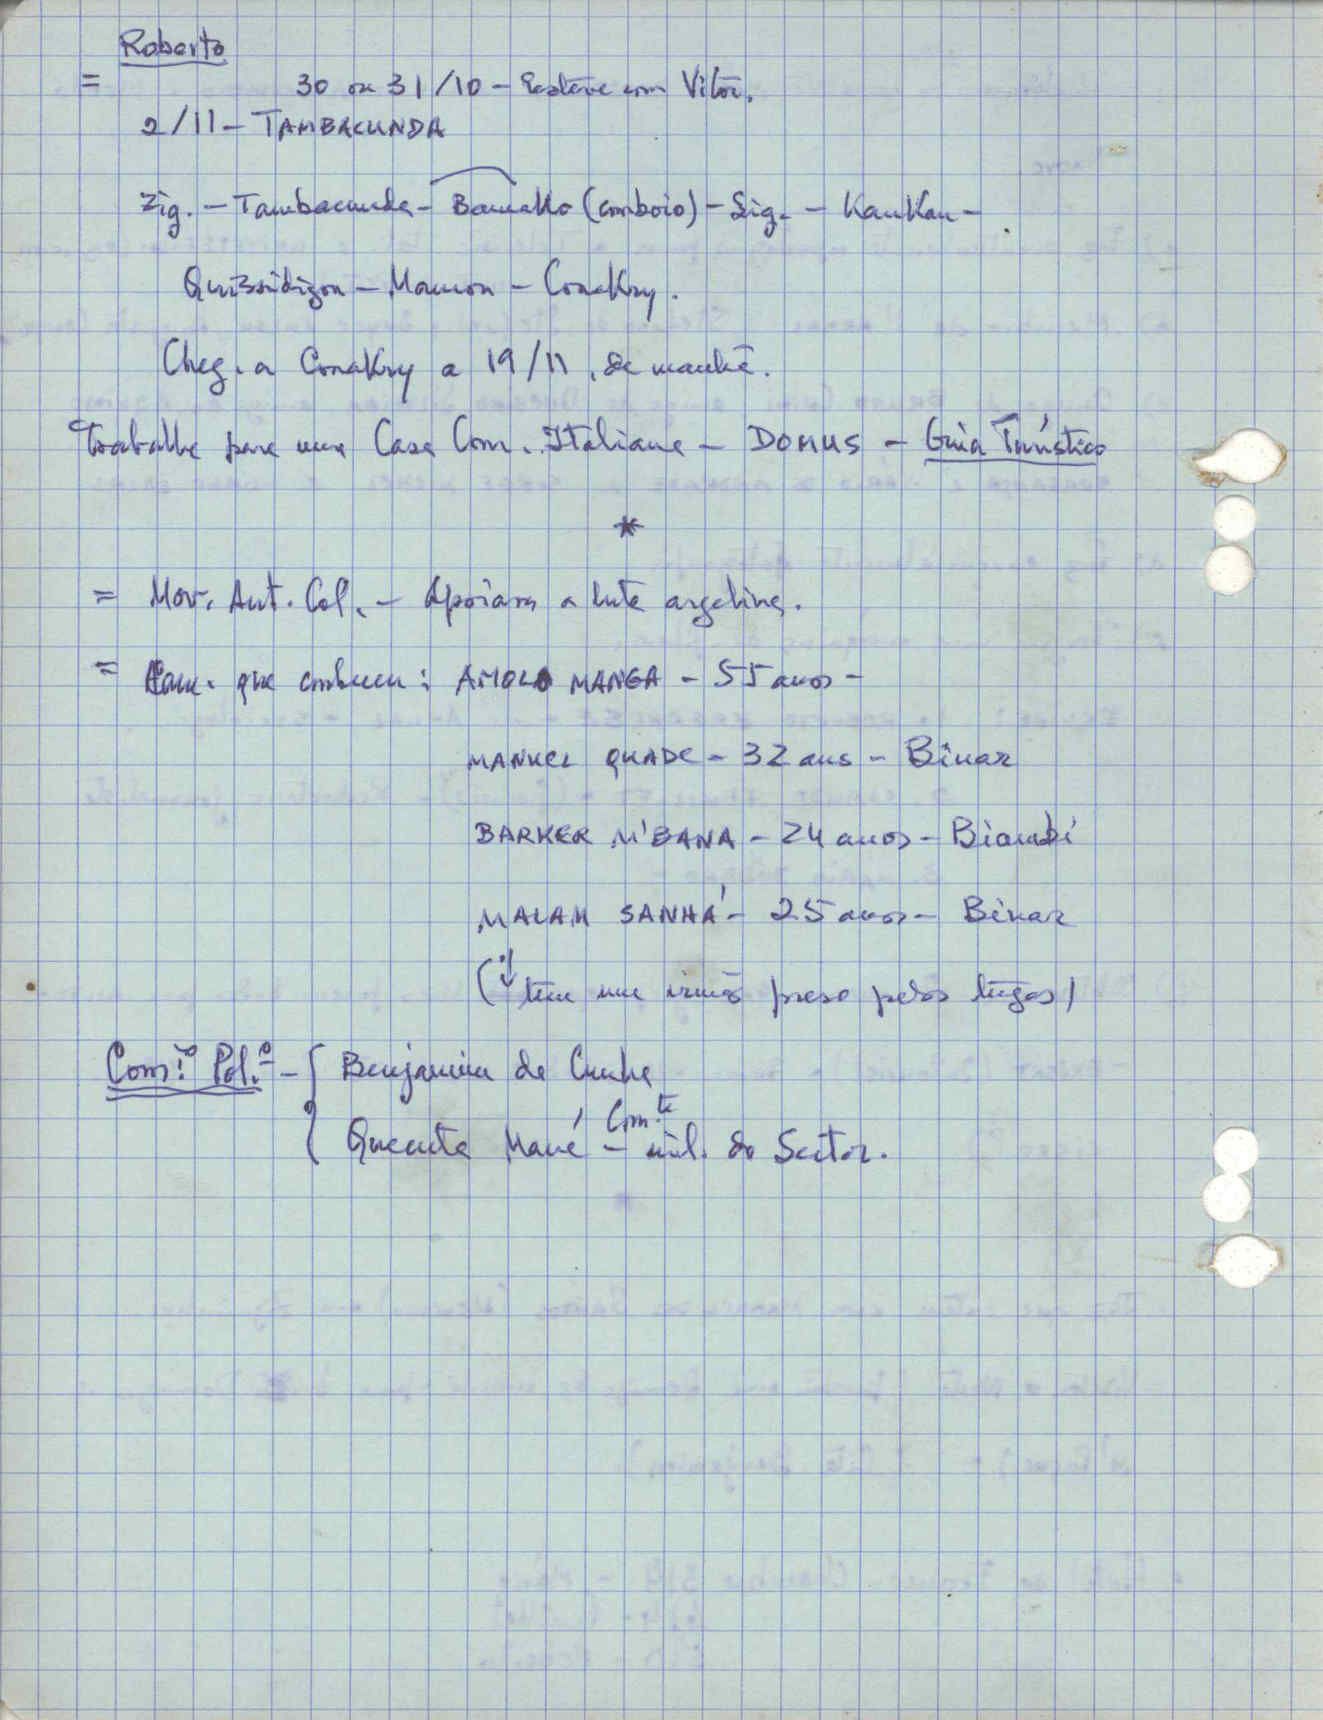 Roberto
= 30 ou 31/10 - Esteve com Vitor.
2/11 - TAMBACUNDA
Zig. - Tambacunda - Bamako (comboio) - Sig. - KanKan -
Quissidigou - Mamou - Conakry.
Cheg. a Conakry a 19/11, de manhã.
Trabalha para uma Casa Com. Italiana - DOMUS - Guia Turístico
*
= Mov. Ant. Col. - Apoiam a luta argelina.
= que conheceu: MANGA - 55 anos -
MANUEL QUADE - 32 anos - Binar
BARKER M'BANA - 24 anos - Biambi
MALAM SANHÁ - 25 anos - Binar
(↓ tem um irmão preso pelos tugas)
Com.º Pol.º - { Benjamim da Cunha
Quecuta Mané - Com.te mil. do Sector.